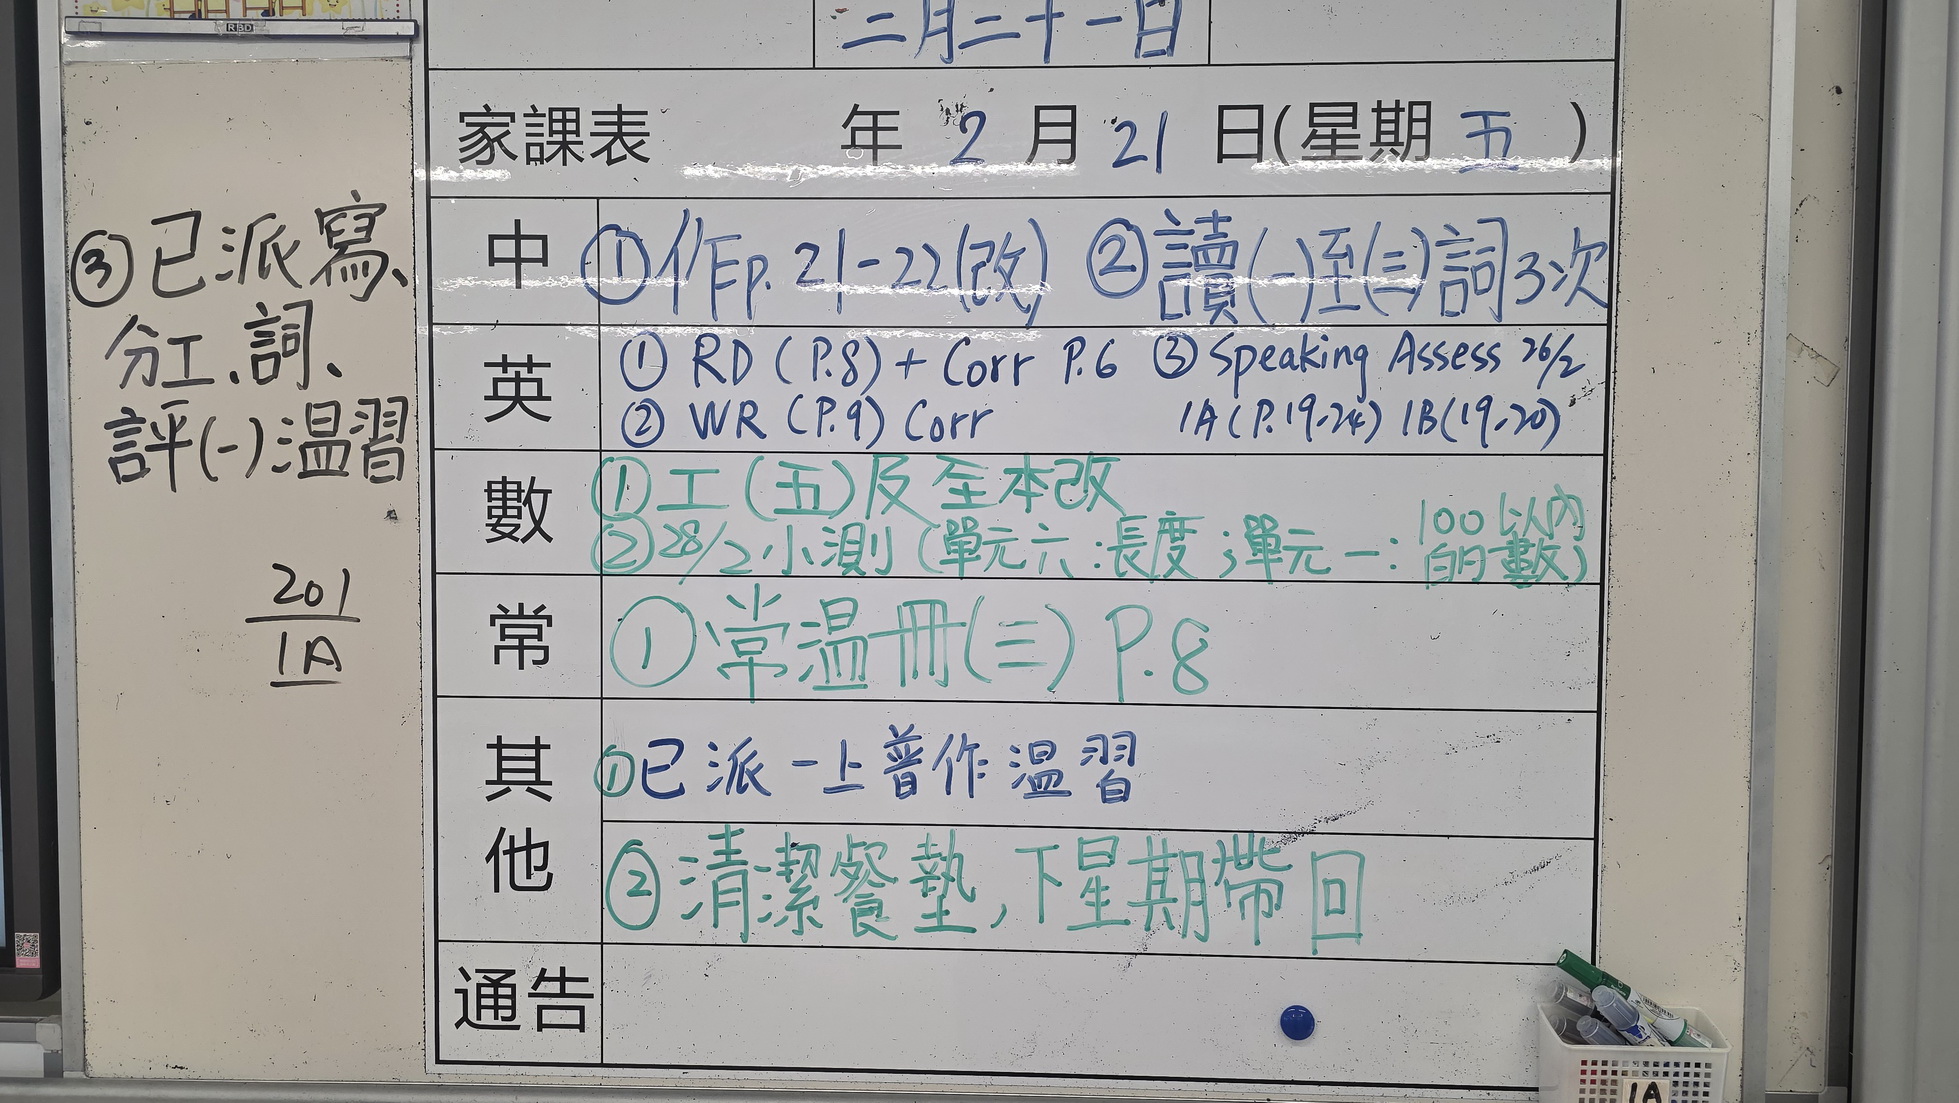 RBD
二月二十一日
家課表 年 2 月 21 日(星期 五 )
中 ①作P.21-22(改) ②讀(一)至(三)詞3次
③已派寫、
分工、詞、
評(一)溫習
英 ① RD (P.8) + Corr P.6 ③ Speaking Assess 26/2
② WR (P.9) Corr 1A(P.19-24) 1B(19-20)
數 ①工(五)及至本改
②28/2小測(單元六:長度;單元一:100以內的數)
201
1A
常 ①常溫冊(三) P.8
其他 ①已派一上普作溫習
②清潔餐墊,下星期帶回
通告
1A